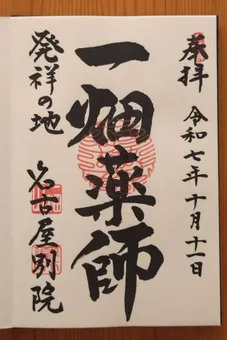 奉拝
令和七年十月十一日
一畑薬師
発祥の地
名古屋別院